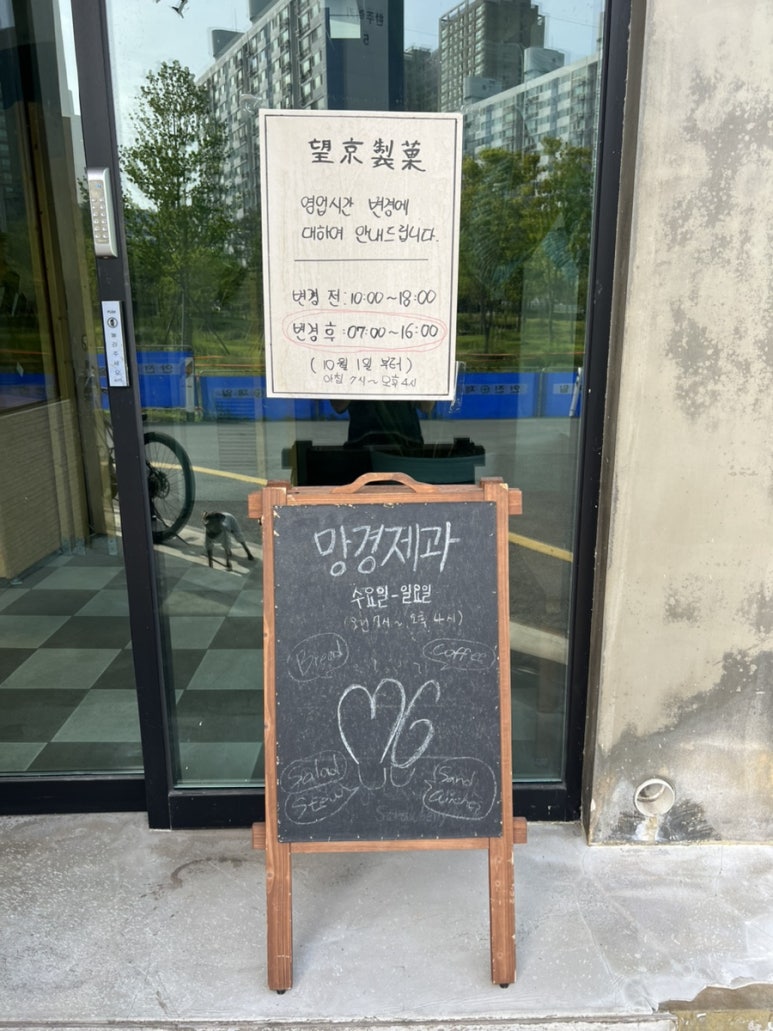 望京製菓
영업시간 변경에
대하여 안내드립니다.
변경 전 : 10:00~18:00
변경 후 : 07:00~16:00
(10월 1일 부터)
아침 7시~오후 4시
망경제과
수요일-일요일
(오전 7시~오후 4시)
Bread
Coffee
MG
Salad
Stew
Sand